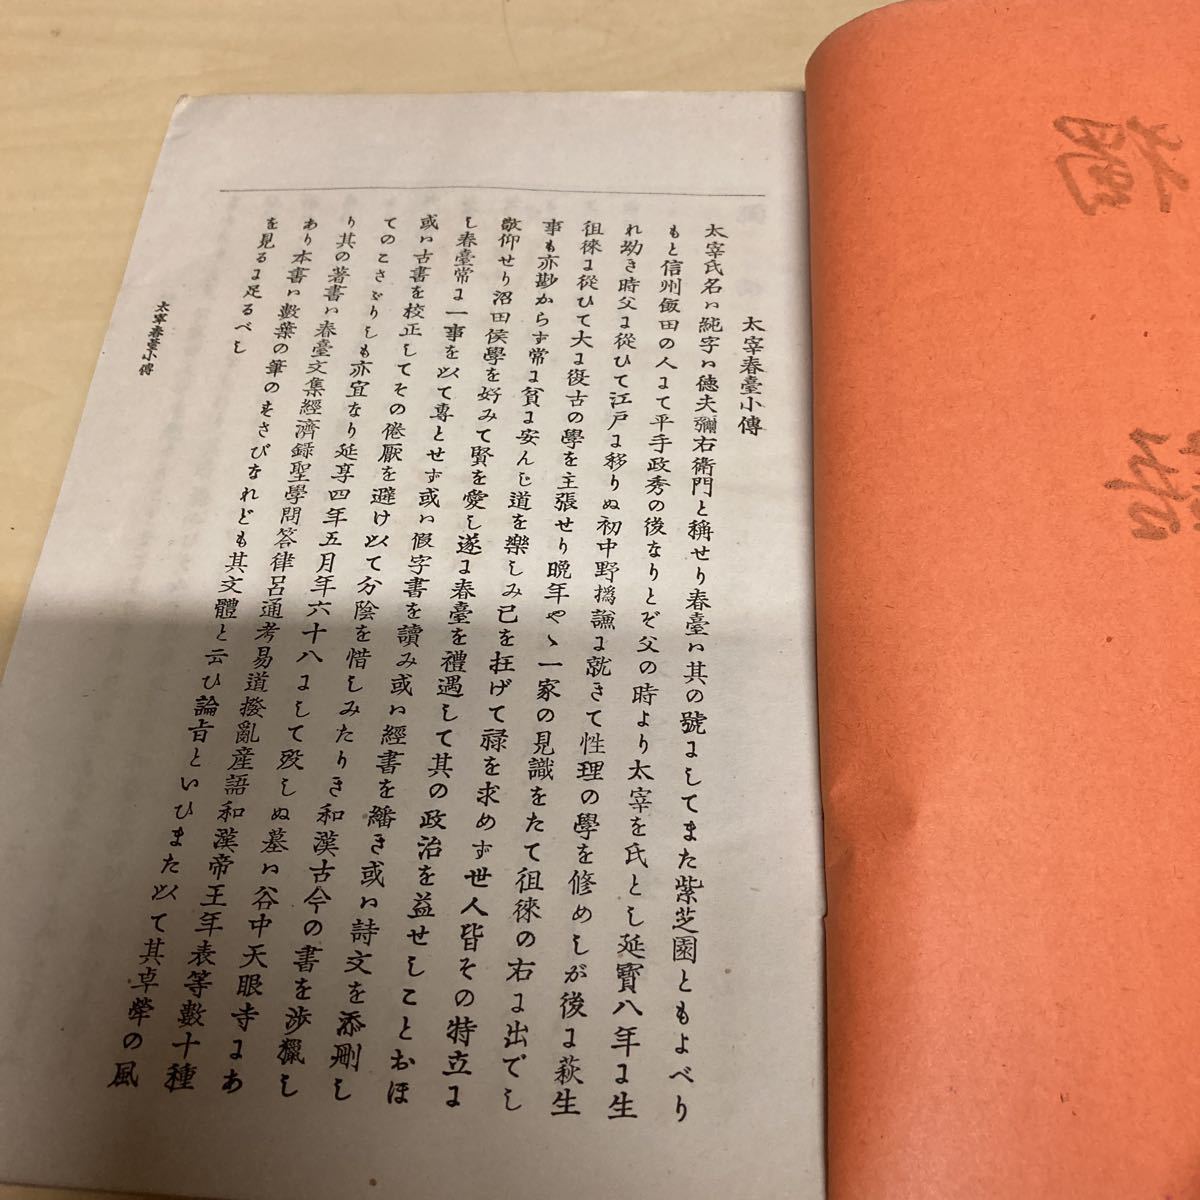 太宰春臺小傳
太宰氏名は純字は徳夫彌右衛門と稱せり春臺は其の號にしてまた紫芝園ともよべり
もと信州飯田の人にて平手政秀の後なりとぞ父の時より太宰を氏とし延寶八年に生
れ幼き時父に從ひて江戸に移りぬ初中野撝謙に就きて性理の學を修めしが後に萩生
徂徠に從ひて大に復古の學を主張せり晩年やゝ一家の見識をたて徂徠の右に出でし
事も亦尠からず常に貧に安んじ道を樂しみ己を枉げて祿を求めず世人皆その特立に
敬仰せり沼田侯學を好みて賢を愛し遂に春臺を禮遇して其の政治を益せしことおほ
し春臺常に一事を以て專とせず或は假字書を讀み或は經書を繙き或は詩文を添刪し
或は古書を校正してその倦厭を避け以て分陰を惜しみたりき和漢古今の書を渉獵し
てのこさゞりしも亦宜なり延享四年五月年六十八にして歿しぬ墓は谷中天眼寺にあ
り其の著書は春臺文集經濟録聖學問答律呂通考易道撥亂産語和漢帝王年表等數十種
あり本書は數葉の筆のすさびなれども其文體と云ひ論旨といひまた以て其卓犖の風
を見るに足るべし
太宰春臺小傳